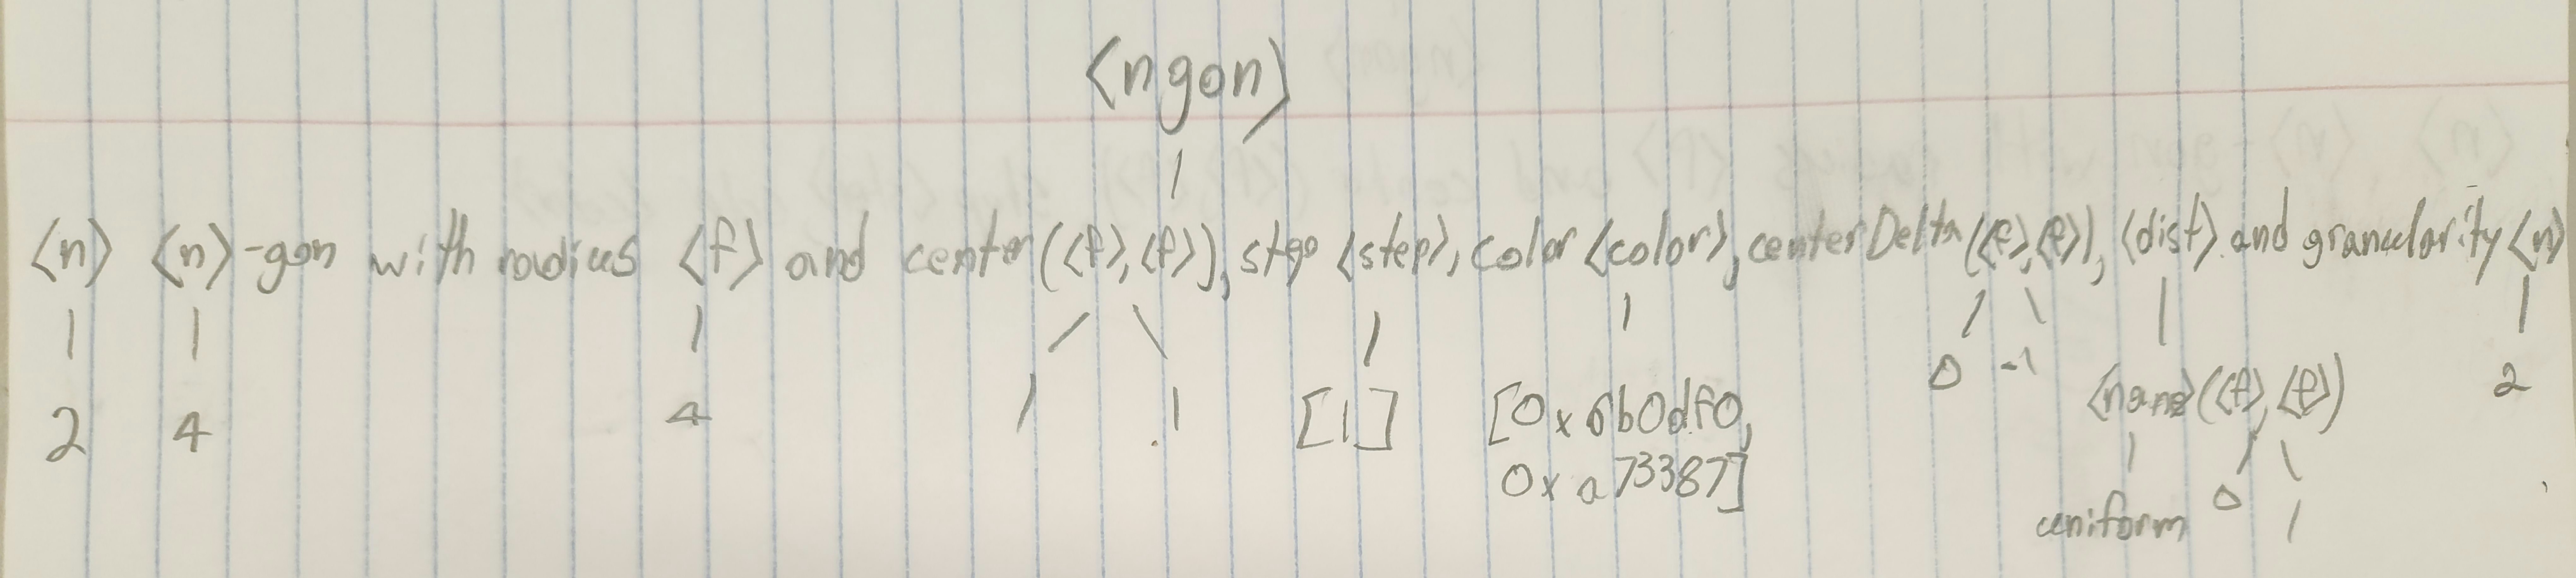 <ngon>
<n> <n>-gon with radius <f> and center(<f>,<f>), step <step>, color <color>, centerDelta(<f>,<f>), <dist> and granularity <n>
2 4 4 1 .1 [1] [0x6b0df0, 0 -1 <name>(<f>,<f>) 2
0xa73387]
uniform 0 1